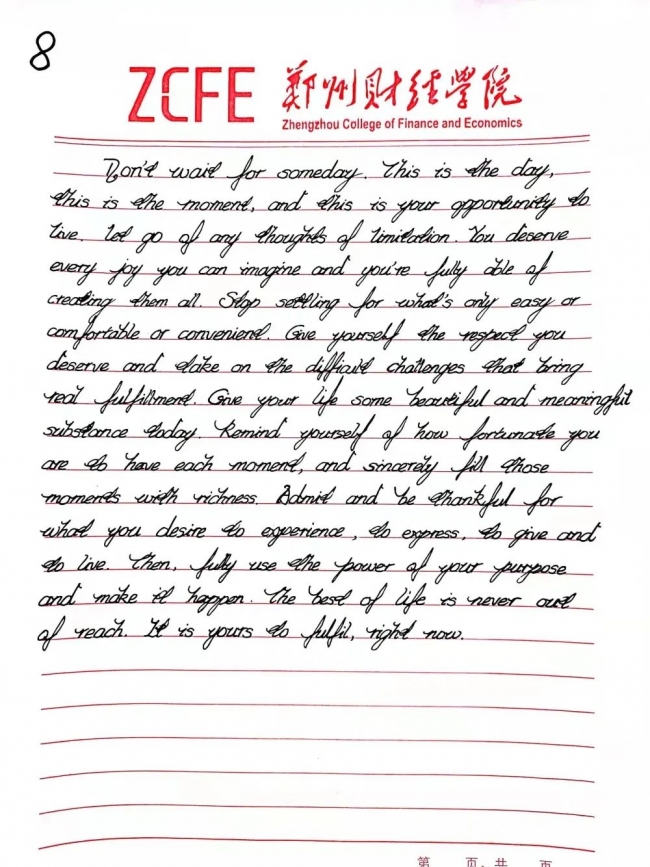 8
ZCFE 郑州财经学院
Zhengzhou College of Finance and Economics
Don't wait for someday. This is the day,
this is the moment, and this is your opportunity to
live. Let go of any thoughts of limitation. You deserve
every joy you can imagine and you're fully able of
creating them all. Stop settling for what's only easy or
comfortable or convenient. Give yourself the respect you
deserve and take on the difficult challenges that bring
real fulfillment. Give your life some beautiful and meaningful
substance today. Remind yourself of how fortunate you
are to have each moment, and sincerely fill those
moments with richness. Admit and be thankful for
what you desire to experience, to express, to give and
to live. Then, fully use the power of your purpose
and make it happen. The best of life is never out
of reach. It is yours to fulfil, right now.
第 页,共 页